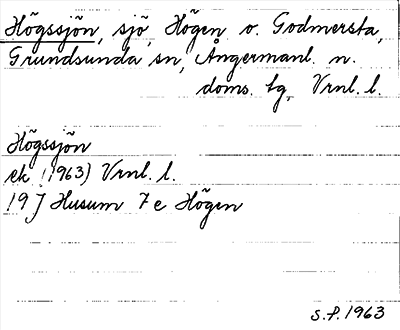 Högssjön, sjö, Högen o. Godmersta,
Grundsunda sn, Ångermanl. n.
doms. tg, Vrnl. l.
Högssjön
ek (1963) Vrnl. l.
19 J Husum 7 e Högen
S.F. 1963